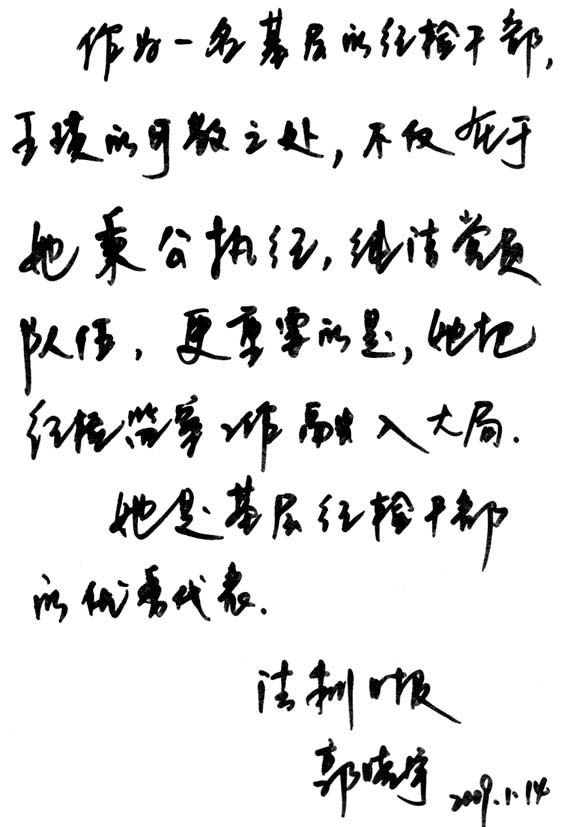 作为一名基层的纪检干部,
王瑛的可敬之处,不仅在于
她秉公执纪,纯洁党员
队伍,更重要的是,她把
纪检监察工作融入大局.
她是基层纪检干部
的优秀代表.
法制日报
郭晓宇 2009.1.14